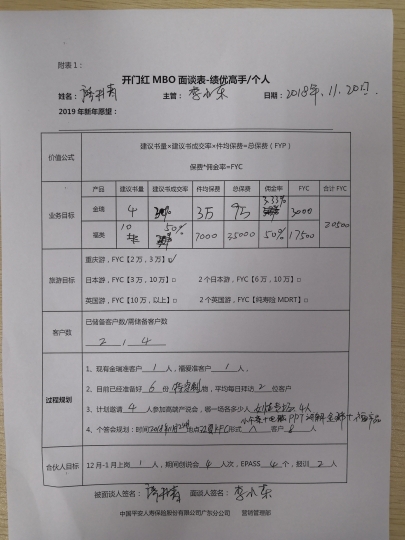 附表1：
开门红 MBO 面谈表-绩优高手/个人
姓名： 主管：李小东 日期：2018年.11.20日.
2019 年新年愿望：
价值公式 建议书量×建议书成交率×件均保费=总保费（FYP）
保费*佣金率=FYC
业务目标 产品 建议书量 建议书成交率 件均保费 总保费 佣金率 FYC 合计 FYC
金瑞 4 3万 9万 3.33% 3000 20500
福类 10 50% 7000 35000 50% 17500
旅游目标 重庆游，FYC【2 万，3 万】☑
日本游，FYC【3 万，10 万】□ 2 个日本游，FYC【6 万，10 万】□
英国游，FYC【10 万，以上】□ 2 个英国游，FYC【纯寿险 MDRT】□
客户数 已储备客户数/需储备客户数
2 1 4
过程规划 1、现有金瑞准客户 1 人，福爱准客户 1 人，
2、目前已经准备好 6 份 物，平均每日拜访 2 位客户
3、计划邀请 4 人参加高端产说会，哪一场各多少人 4人
4、个签会规划：时间 地点 形式 客户 8 人
合伙人目标 12 月-1 月上岗 1 人，期间创说会 4 人次，EPASS 4 个，报训 2 人
被面谈人签名： 面谈人签名：李小东
中国平安人寿保险股份有限公司广东分公司 营销管理部